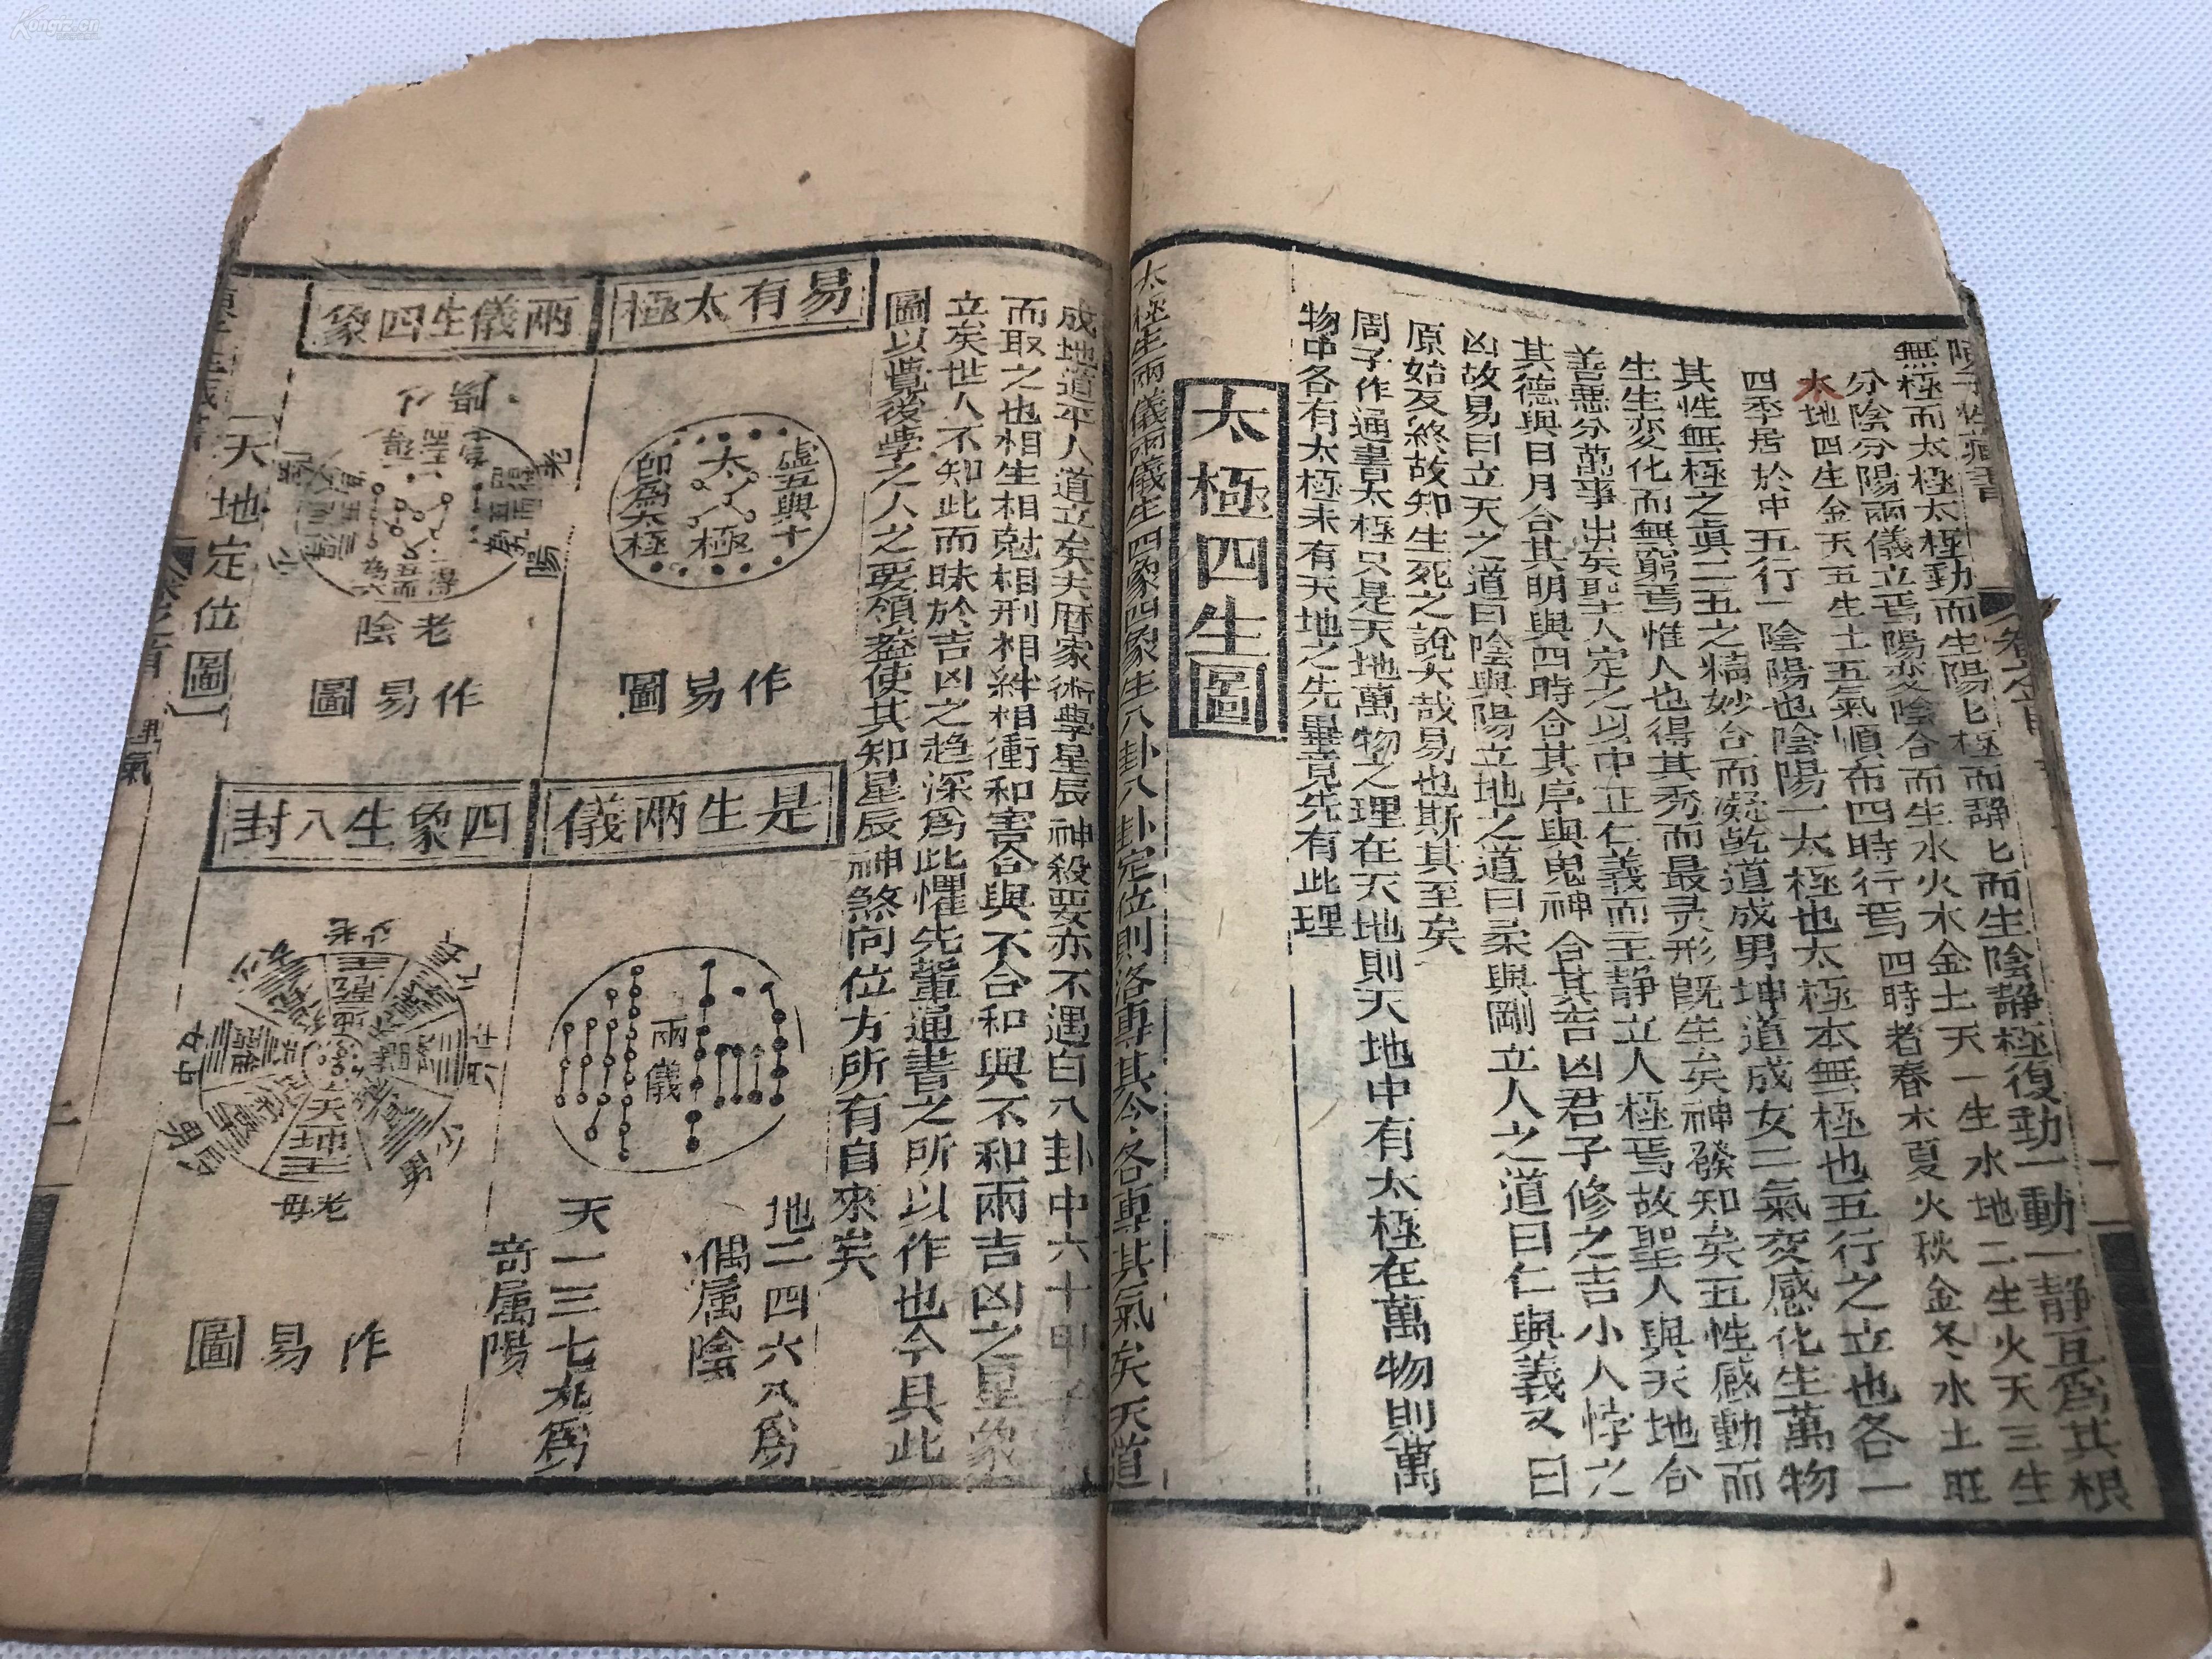 無極而太極太極動而生陽匕極而静匕而生陰静極復動一動一静互爲其根
分陰分陽兩儀立焉陽变陰合而生水火木金土天一生水地二生火天三生
木地四生金天五生土五氣順布四時行焉四時者春木夏火秋金冬水土旺
四季居於中五行一陰陽也陰陽一太極也太極本無極也五行之立也各一
其性無極之眞二五之精妙合而凝乾道成男坤道成女二氣交感化生萬物
生生変化而無窮焉惟人也得其秀而最灵形既生矣神發知矣五性感動而
善惡分萬事出矣聖人定之以中正仁義而主静立人極焉故聖人與天地合
其德與日月合其明與四時合其序與鬼神合其吉凶君子修之吉小人悖之
凶故易曰立天之道曰陰與陽立地之道曰柔與剛立人之道曰仁與義又曰
原始反終故知生死之說大哉易也斯其至矣
周子作通書太極只是天地萬物之理在天地則天地中有太極在萬物則萬
物中各有太極未有天地之先畢竟先有此理
太極四生圖
太極生兩儀兩儀生四象四象生八卦八卦定位則洛専其令各専其氣矣天道
成地道平人道立矣夫曆家術專星辰神殺要亦不過白八卦中六十甲子
而取之也相生相尅相刑相絆相衝和害合與不合和與不和兩吉凶之星象
立矣世人不知此而昧於吉凶之趋深爲此懼先輩通書之所以作也今具此
圖以覺後學之人之要領葢使其知星辰神煞向位方所有自來矣
易有太極
虛五與十
太極
即爲太極
作易圖
兩儀生四象
老陽
老陰
作易圖
是生兩儀
兩儀
地二四六八爲
偶属陰
天一三七九爲
奇属陽
四象生八封
中女
少男
老母
作易圖
天地定位圖
卷之首
理氣
二
Kongfz.cn